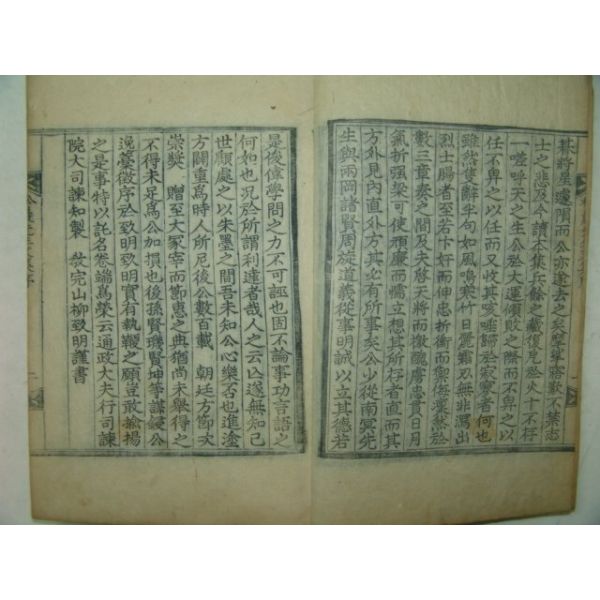 其將星遽隕而公亦遂去之矣嗚呼窃歎不禁志
士之悲及今讀本集兵餘之藏復厄於火十不存
一嗟呼天之生公於大運傾敗之際而不畀之以
任不畀之以任而又收其咳唾歸於寂寥者何也
雖然隻辭半句如風鳴寒竹日麗霜刃無非瀉出
烈士腸者至若卞奸而伸忠折衝而禦侮
數三章奏之間及夫啓天將而撤醜虜忠貫日月
氣折强梁可使頑廉而懦立想其所存者直而其
方外見內直外方其必有所事矣公少從南冥先
生與兩岡諸賢周旋道義從事明誠以立其德若
是俊偉學問之力不可誣也固不論事功言語之
何如也況於所謂利達者哉人之云亡遂無知己
世顧處之以朱墨之間吾未知公心樂否也進塗
方闢重爲時人所尼後公數百載 朝廷方節次
崇奬 贈至大冢宰而節惠之典猶尚未舉得之
不得未足爲公加損也後孫賢璣賢坤等謀鋟公
逸藁徵序於致明致明實有執鞭之願豈敢揄揚
之是事特以託名卷端爲榮云通政大夫行司諫
院大司諫知製 敎完山柳致明謹書